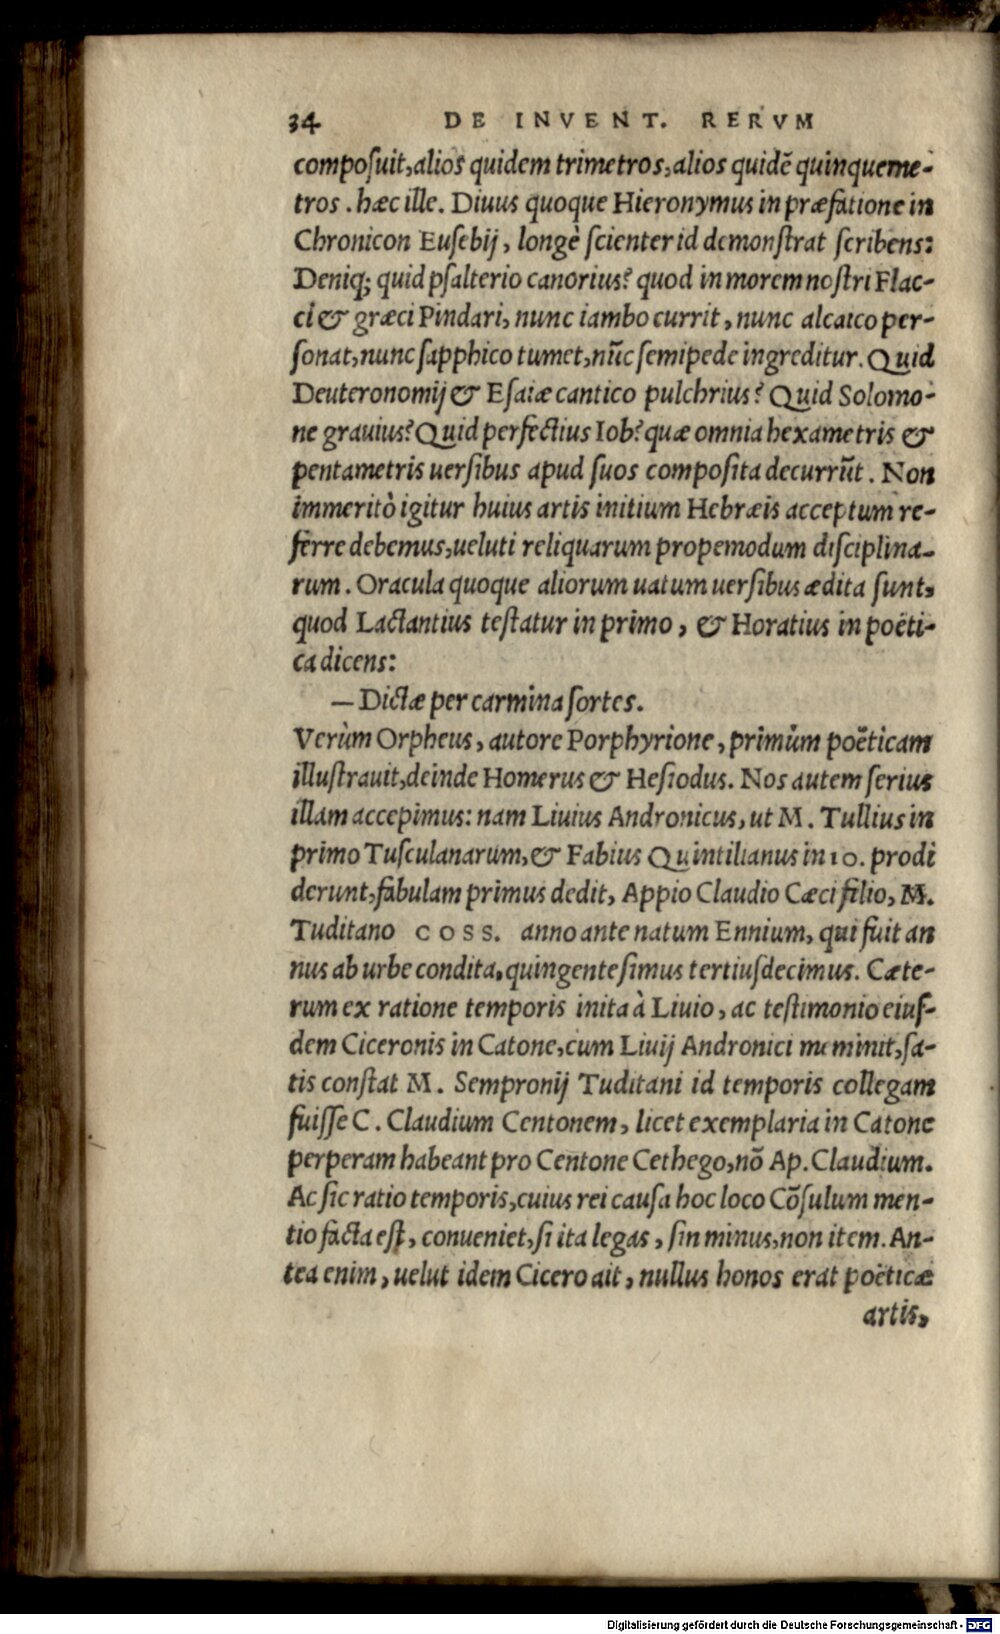 34 DE INVENT. RERVM
compoſuit, alios quidem trimetros, alios quidẽ quinqueme-
tros. hæc ille. Diuus quoque Hieronymus in præfatione in
Chronicon Euſebij, longè ſcienter id demonſtrat ſcribens:
Deniq; quid pſalterio canorius? quod in morem noſtri Flac-
ci & græci Pindari, nunc iambo currit, nunc alcaico per-
ſonat, nunc ſapphico tumet, nũc ſemipede ingreditur. Quid
Deuteronomij & Eſaiæ cantico pulchrius? Quid Solomo-
ne grauius? Quid perfectius Iob? quæ omnia hexametris &
pentametris uerſibus apud ſuos compoſita decurrũt. Non
immeritò igitur huius artis initium Hebræis acceptum re-
ferre debemus, ueluti reliquarum propemodum diſciplina-
rum. Oracula quoque aliorum uatum uerſibus ædita ſunt,
quod Lactantius teſtatur in primo, & Horatius in poëti-
ca dicens:
— Dictæ per carmina ſortes.
Verùm Orpheus, autore Porphyrione, primùm poëticam
illuſtrauit, deinde Homerus & Heſiodus. Nos autem ſerius
illam accepimus: nam Liuius Andronicus, ut M. Tullius in
primo Tuſculanarum, & Fabius Quintilianus in 10. prodi
derunt, fabulam primus dedit, Appio Claudio Cæci filio, M.
Tuditano COSS. anno ante natum Ennium, qui fuit an
nus ab urbe condita, quingenteſimus tertiuſdecimus. Cæte-
rum ex ratione temporis inita à Liuio, ac teſtimonio eiuſ-
dem Ciceronis in Catone, cum Liuij Andronici meminit, ſa-
tis conſtat M. Sempronij Tuditani id temporis collegam
fuiſſe C. Claudium Centonem, licet exemplaria in Catone
perperam habeant pro Centone Cethego, nõ Ap. Claudium.
Ac ſic ratio temporis, cuius rei cauſa hoc loco Cõſulum men-
tio facta eſt, conueniet, ſi ita legas, ſin minus, non item. An-
tea enim, uelut idem Cicero ait, nullus honos erat poëticæ
artis,
Digitalisierung gefördert durch die Deutsche Forschungsgemeinschaft - DFG